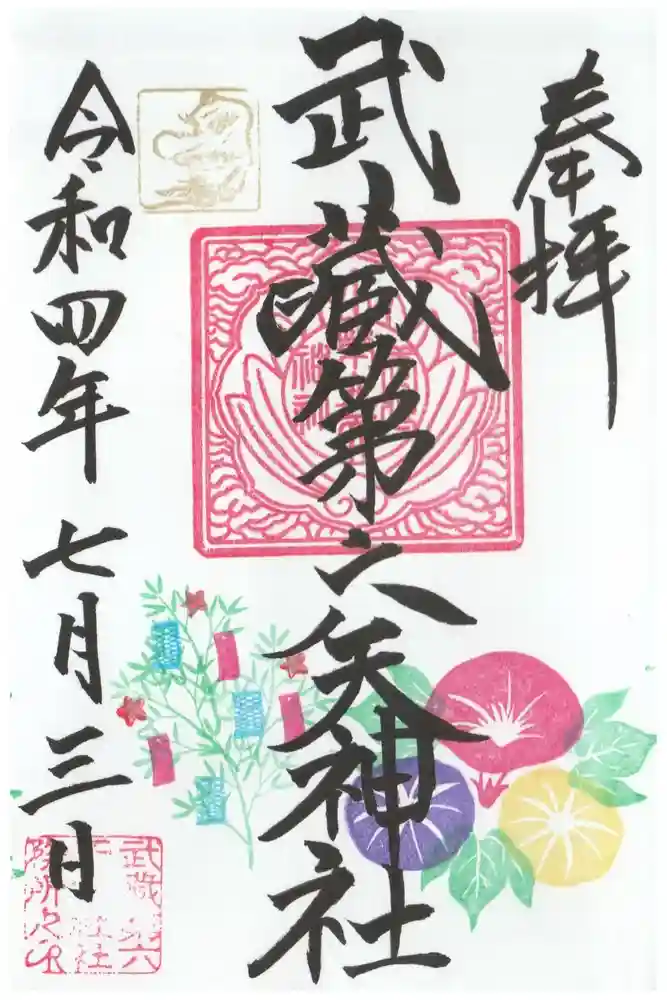 奉拝
武蔵第六天神社
令和四年七月三日
武蔵第六
天神社
務所之印